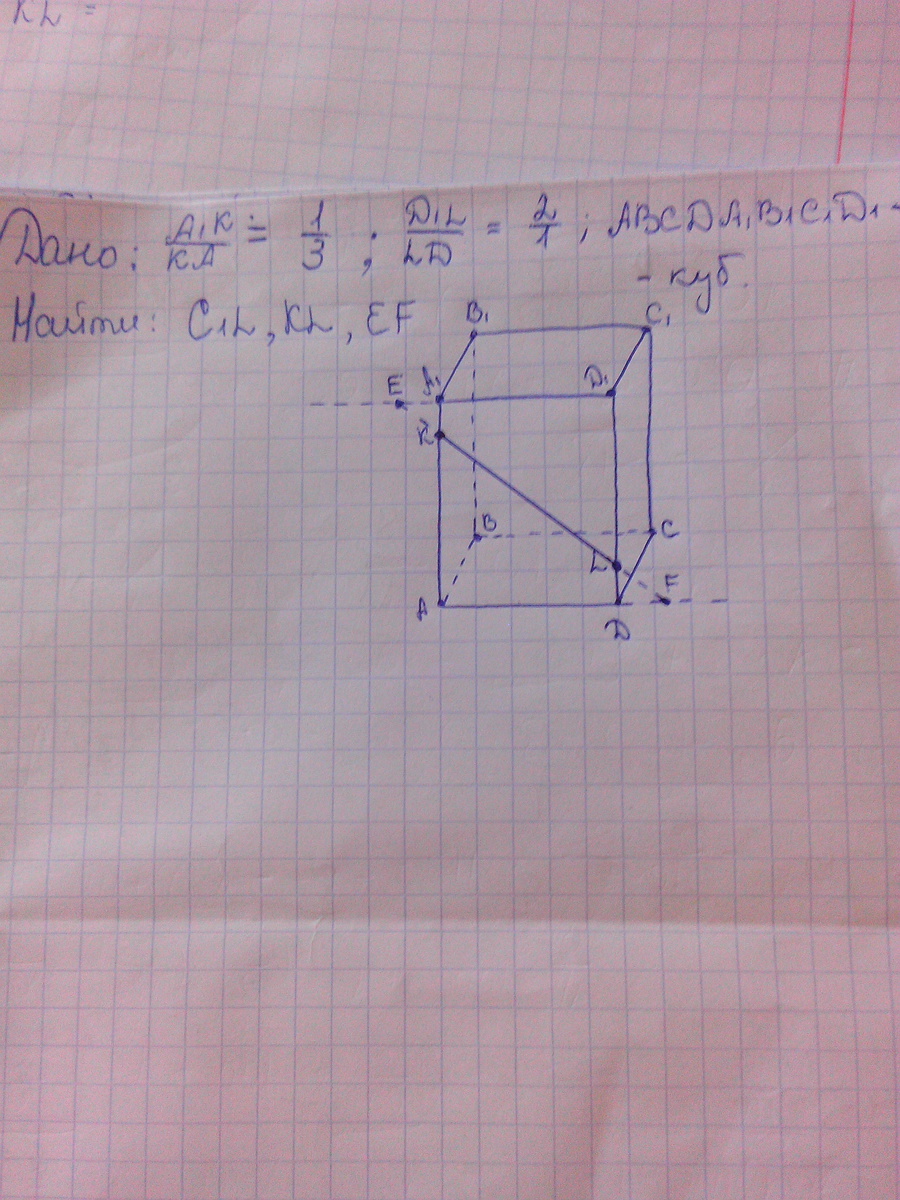 KL =
Дано: A₁K/KA = 1/3 ; D₁L/LD = 2/1 ; ABCDA₁B₁C₁D₁ -
- куб.
Найти: C₁L, KL, EF
B₁ C₁
E A₁ D₁
K
B C
L F
A D